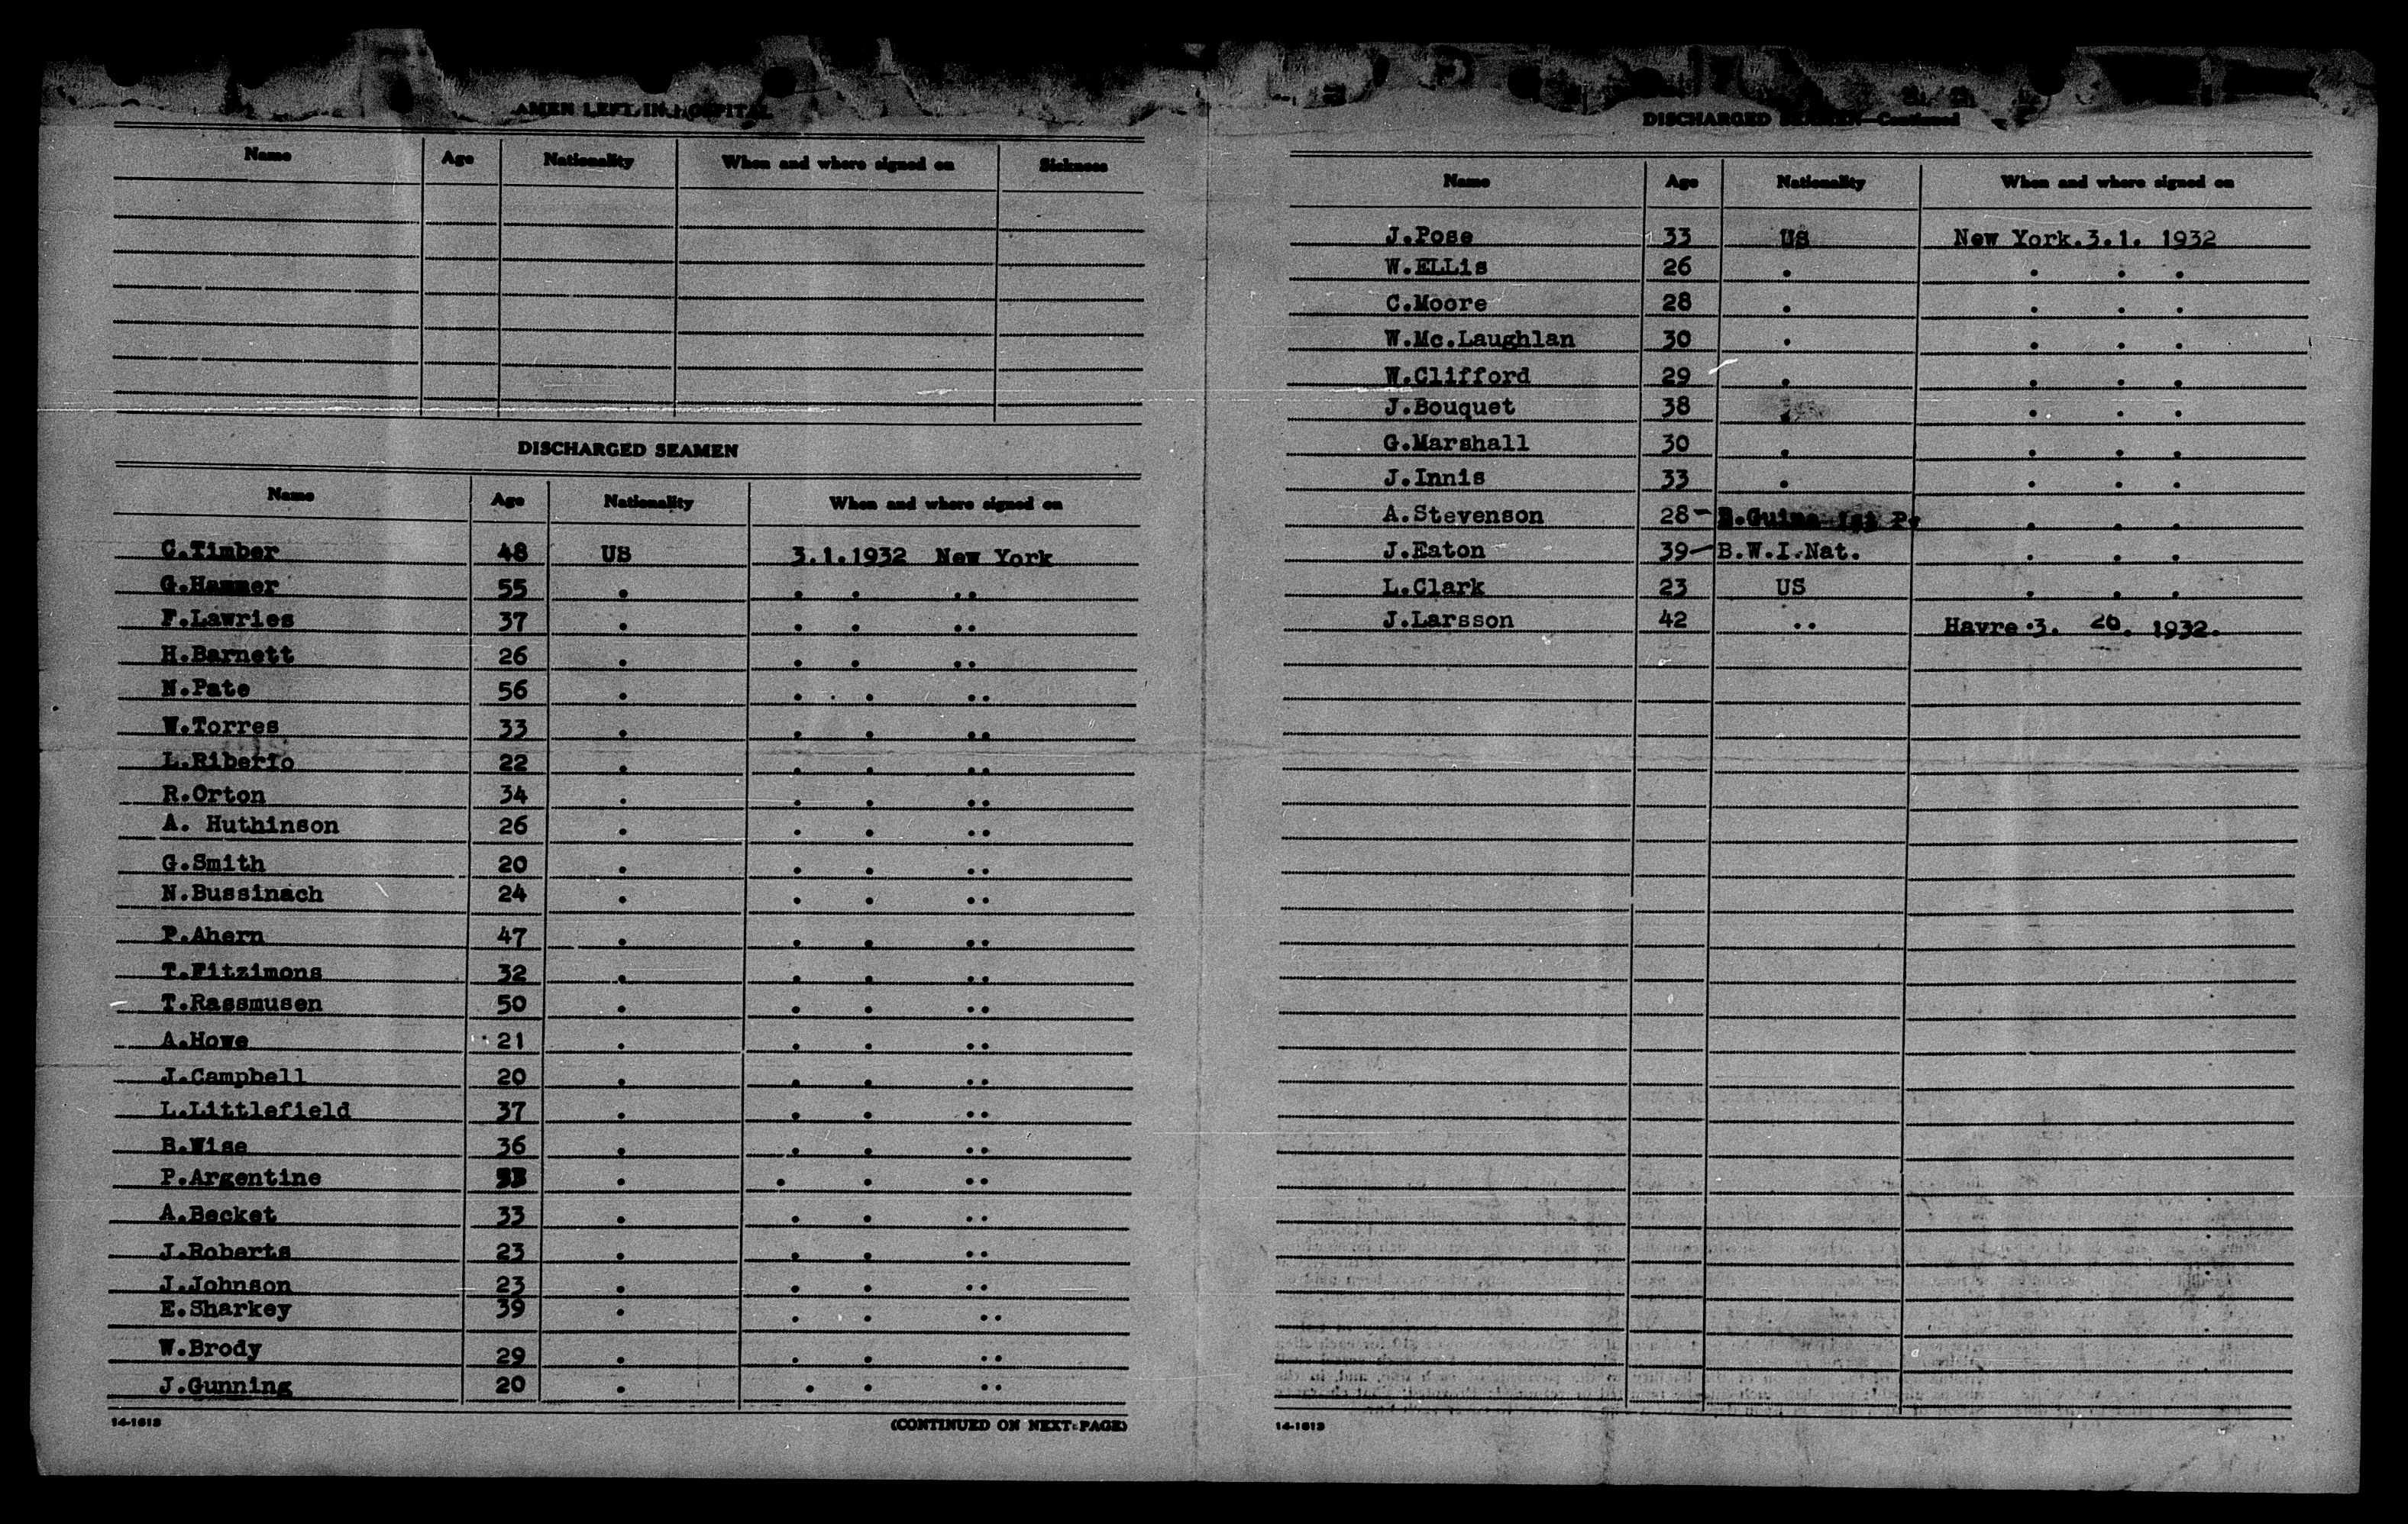 AMEN LEFT IN HOSPITAL
Name Age Nationality When and where signed on Sickness
DISCHARGED SEAMEN
Name Age Nationality When and where signed on
C.Timber 48 US 3.1.1932 New York
G.Hammer 55 . . . ..
F.Lawries 37 . . . ..
H.Barnett 26 . . . ..
N.Pate 56 . . . ..
W.Torres 33 . . . ..
L.Riberio 22 . . . ..
R.Orton 34 . . . ..
A. Huthinson 26 . . . ..
G.Smith 20 . . . ..
N.Bussinach 24 . . . ..
P.Ahern 47 . . . ..
T.Fitzimons 32 . . . ..
T.Rassmusen 50 . . . ..
A.Howe 21 . . . ..
J.Campbell 20 . . . ..
L.Littlefield 37 . . . ..
B.Wise 36 . . . ..
P.Argentine . . . ..
A.Becket 33 . . . ..
J.Roberts 23 . . . ..
J.Johnson 23 . . . ..
E.Sharkey 39 . . . ..
W.Brody 29 . . . ..
J.Gunning 20 . . . ..
14-1613 (CONTINUED ON NEXT PAGE)
DISCHARGED SEAMEN—Continued
Name Age Nationality When and where signed on
J.Pose 33 US New York.3.1. 1932
W.ELLis 26 . . . .
C.Moore 28 . . . .
W.Mc.Laughlan 30 . . . .
W.Clifford 29 . . . .
J.Bouquet 38 . . . .
G.Marshall 30 . . . .
J.Innis 33 . . . .
A.Stevenson 28- B.Guina 1st . . .
J.Eaton 39- B.W.I.Nat. . . .
L.Clark 23 US . . .
J.Larsson 42 .. Havre.3. 26. 1932.
14-1613